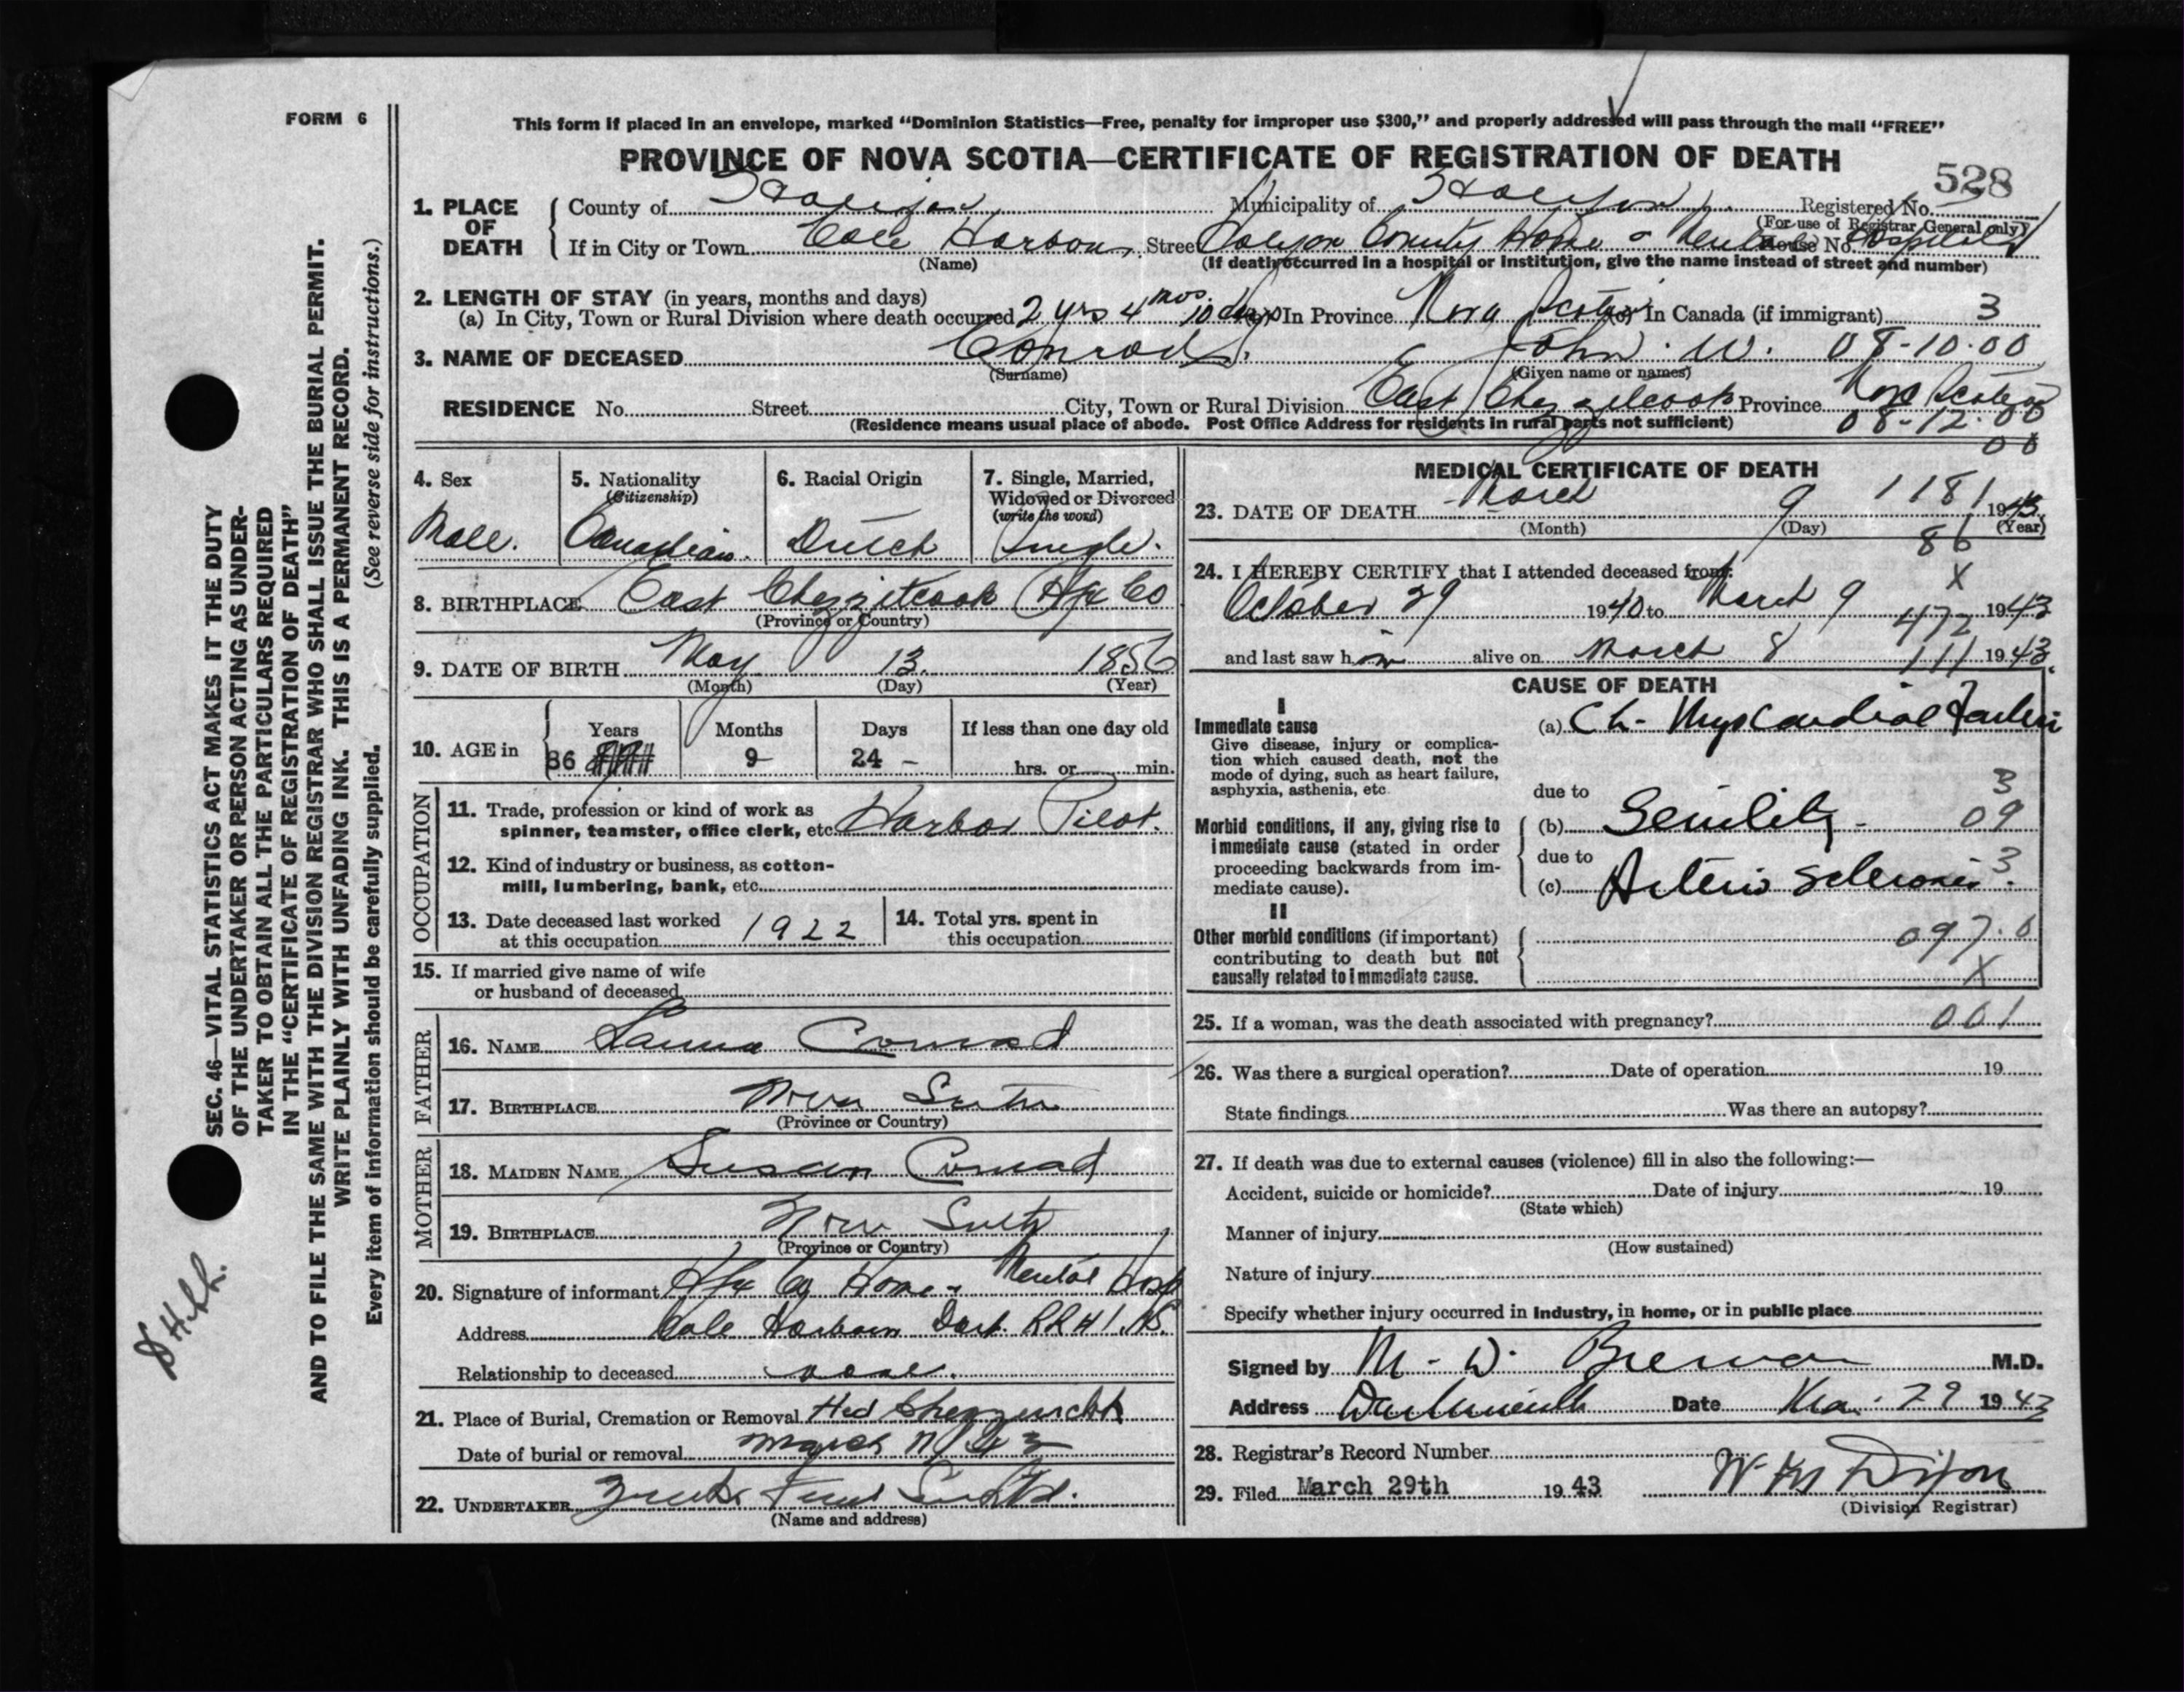 FORM 6
This form if placed in an envelope, marked "Dominion Statistics—Free, penalty for improper use $300," and properly addressed will pass through the mail "FREE"
PROVINCE OF NOVA SCOTIA—CERTIFICATE OF REGISTRATION OF DEATH
528
1. PLACE OF DEATH { County of Halifax Municipality of Halifax Registered No.
(For use of Registrar General only)
If in City or Town Cole Harbour, Street Halifax County Home & Mental Hospital House No.
(Name) (If death occurred in a hospital or institution, give the name instead of street and number)
2. LENGTH OF STAY (in years, months and days)
(a) In City, Town or Rural Division where death occurred 2 yrs 4 mos. 10 days In Province Nova Scotia (c) In Canada (if immigrant) 3
3. NAME OF DECEASED Conrad, John W. 08-10.00
(Surname) (Given name or names)
RESIDENCE No. Street City, Town or Rural Division East Chezzetcook Province Nova Scotia
(Residence means usual place of abode. Post Office Address for residents in rural parts not sufficient) 08-12.00
00
4. Sex 5. Nationality 6. Racial Origin 7. Single, Married,
(Citizenship) Widowed or Divorced
(write the word)
Male. Canadian. Dutch Single.
8. BIRTHPLACE East Chezzetcook Hfx Co
(Province or Country)
9. DATE OF BIRTH May 13. 1856
(Month) (Day) (Year)
10. AGE in Years Months Days If less than one day old
86 9 24 hrs. or min.
OCCUPATION
11. Trade, profession or kind of work as
spinner, teamster, office clerk, etc. Harbor Pilot.
12. Kind of industry or business, as cotton-
mill, lumbering, bank, etc.
13. Date deceased last worked
at this occupation 1922
14. Total yrs. spent in
this occupation
15. If married give name of wife
or husband of deceased
FATHER
16. NAME Conrad
17. BIRTHPLACE Nova Scotia
(Province or Country)
MOTHER
18. MAIDEN NAME Susan Conrad
19. BIRTHPLACE Nova Scotia
(Province or Country)
20. Signature of informant Hfx Co Home & Mental Hosp
Address Cole Harbour Dart. RR #1. NS.
Relationship to deceased none.
21. Place of Burial, Cremation or Removal
Date of burial or removal March 11 43
22. UNDERTAKER
(Name and address)
MEDICAL CERTIFICATE OF DEATH
23. DATE OF DEATH March 9 1943
(Month) (Day) (Year)
1181
86
24. I HEREBY CERTIFY that I attended deceased from:
X
October 29 1940 to March 9 1943
472
and last saw him alive on March 8 1943.
111
CAUSE OF DEATH
I
Immediate cause
Give disease, injury or complica-
tion which caused death, not the
mode of dying, such as heart failure,
asphyxia, asthenia, etc.
(a) Ch- Myocardial Failure
due to 3
Morbid conditions, if any, giving rise to
immediate cause (stated in order
proceeding backwards from im-
mediate cause).
(b) Senility - 09
due to 3
(c) Arterio Sclerosis.
II
Other morbid conditions (if important)
contributing to death but not
causally related to immediate cause.
097.0
X
25. If a woman, was the death associated with pregnancy? 001
26. Was there a surgical operation? Date of operation 19
State findings Was there an autopsy?
27. If death was due to external causes (violence) fill in also the following:—
Accident, suicide or homicide? Date of injury 19
(State which)
Manner of injury
(How sustained)
Nature of injury
Specify whether injury occurred in Industry, in home, or in public place
Signed by M. D. M.D.
Address Dartmouth Date Mar. 29 1943
28. Registrar's Record Number
29. Filed March 29th 1943
(Division Registrar)
SEC. 46—VITAL STATISTICS ACT MAKES IT THE DUTY
OF THE UNDERTAKER OR PERSON ACTING AS UNDER-
TAKER TO OBTAIN ALL THE PARTICULARS REQUIRED
IN THE "CERTIFICATE OF REGISTRATION OF DEATH"
AND TO FILE THE SAME WITH THE DIVISION REGISTRAR WHO SHALL ISSUE THE BURIAL PERMIT.
WRITE PLAINLY WITH UNFADING INK. THIS IS A PERMANENT RECORD.
Every item of information should be carefully supplied. (See reverse side for instructions.)